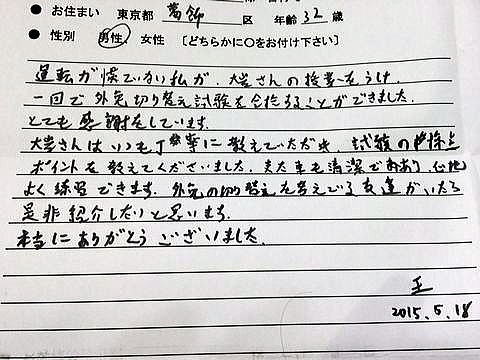 ● お住まい 東京都 葛飾 区 年齢 32 歳
● 性別 男性、女性 [どちらかに○をお付け下さい]
運転が慣ていない私が、大岩さんの授業をうけ、
一回で外免切り替え試験を合格ることができました。
とても感謝をしています。
大岩さんはいつも丁寧に教えていただき、試験の採点
ポイントを教えてくださいました。また車も清潔であり、心地
よく練習できます。外免の切り替えを考えでる友達がいたら
是非紹介したいと思います。
本当にありがとうございました。
王
2015.5.18